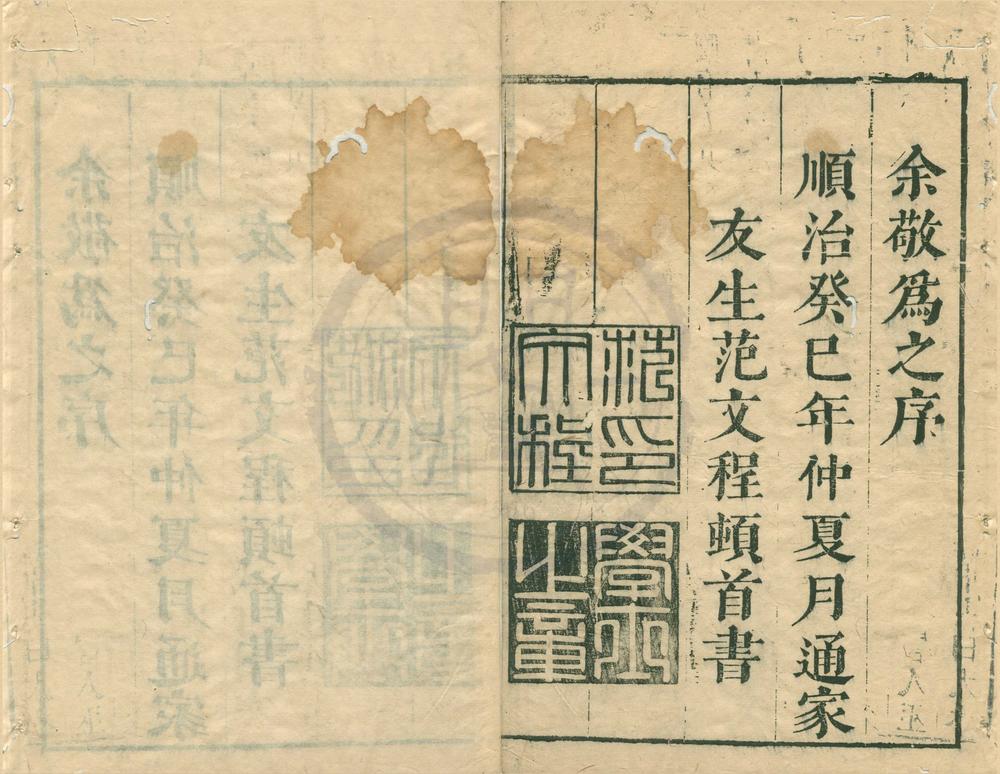 余敬爲之序
順治癸巳年仲夏月通家
友生范文程頓首書
范印
文程